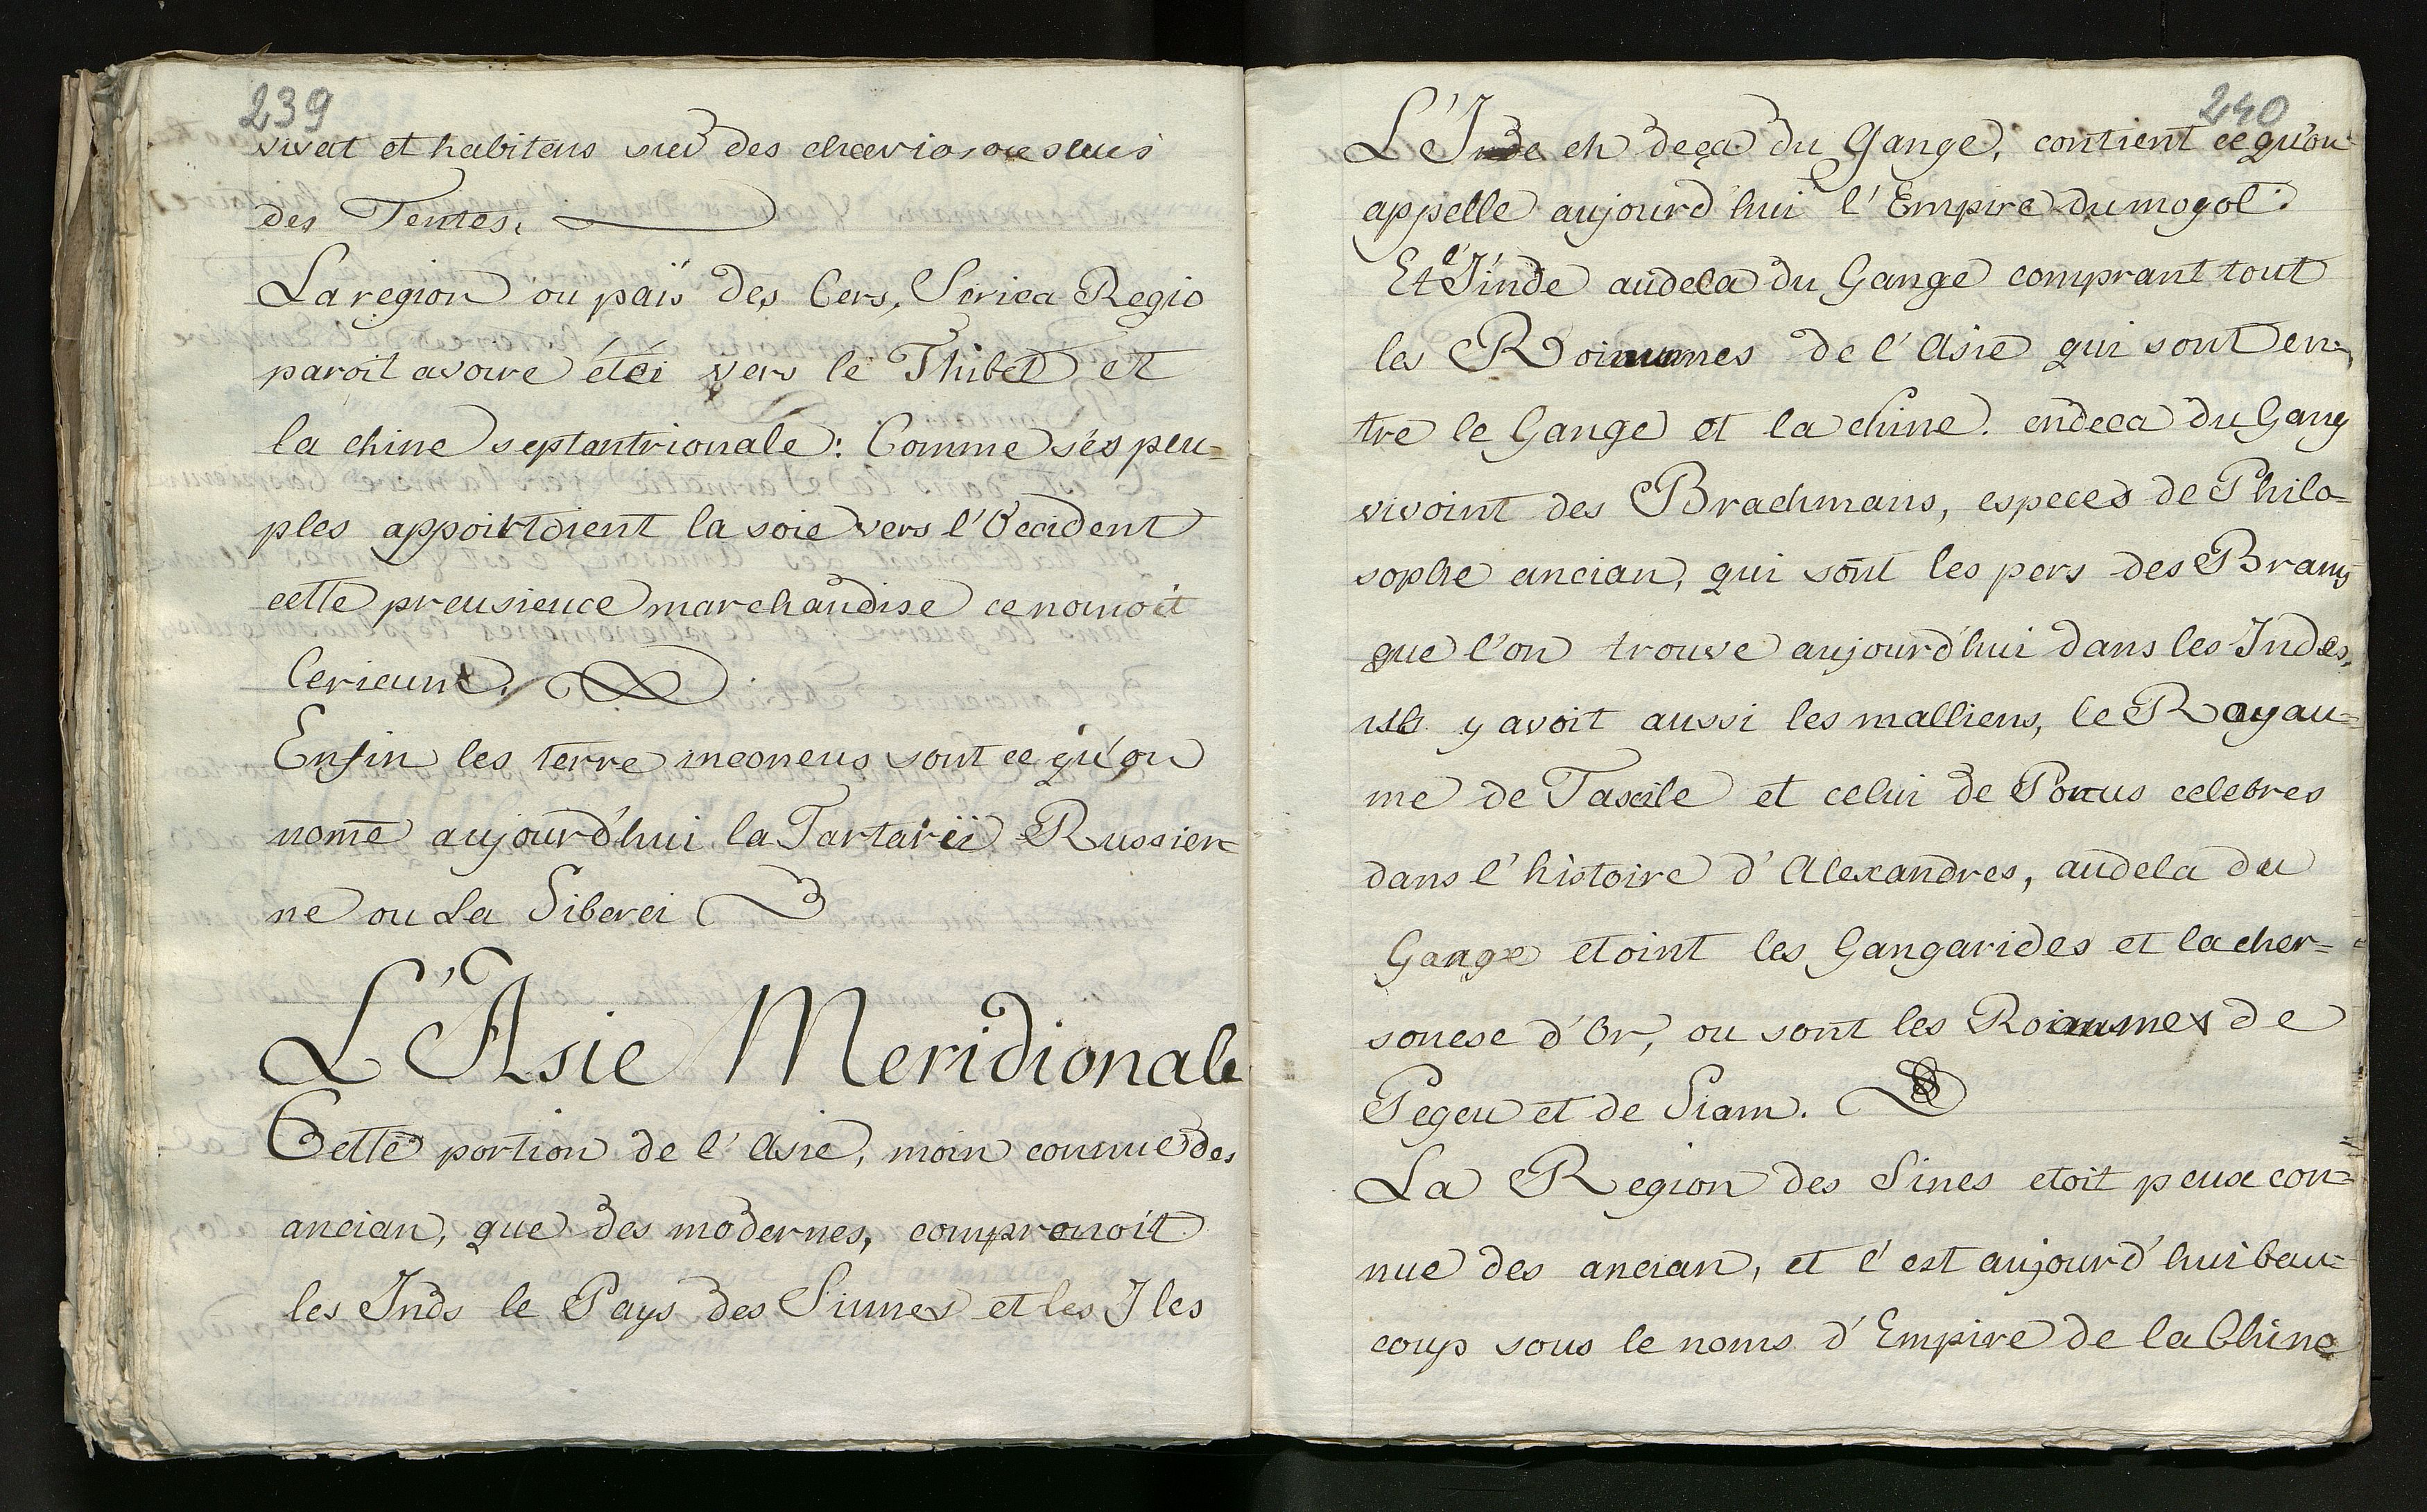 239
vivat et habitans sur des chariosou sous
des Tentes.
La region ou païs des Cers, Serica Regio
paroit avoire étéi vers le Thibet et
la chine septantrionale: Comme ses peu=
ples apportoient la soie vers l'Occident
cette preusieuce marchandise ce nomoit
Cericum.
Enfin les terre inconeus sont ce qu'on
nome aujourd'hui la Tartarii Russien=
ne ou La Siberei
L'Asie Meridionale
Cette portion de l'Asie, moin connue des
ancian, que des modernes, comprenoit
les Inds le Pays des Sinnes et les Iles
240
L'Inde en deça du Gange, contient ce qu'on
appelle aujourd'hui l'Empire du mogol.
Et l'inde audela du Gange comprant tout
les Roiaumes de l'Asie qui sont en=
tre le Gange et la chine. endeca du Gang
vivoint des Brachmans, especes de Philo=
sophe ancian, qui sont les pers des Brams
que l'on trouve aujourd'hui dans les Indes,
y avoit aussi les malliens, le Royau=
me de Taxile et celui de Porus celebres
dans l'histoire d'Alexandres, audela du
Gange etoint les Gangarides et la cher=
sonese d'Or, ou sont les Roiaumes de
Pegeu et de Siam.
La Region des Sines etoit peux con=
nue des ancian, et l'est aujourd'hui beau=
coup sous le noms d'Empire de la Chine